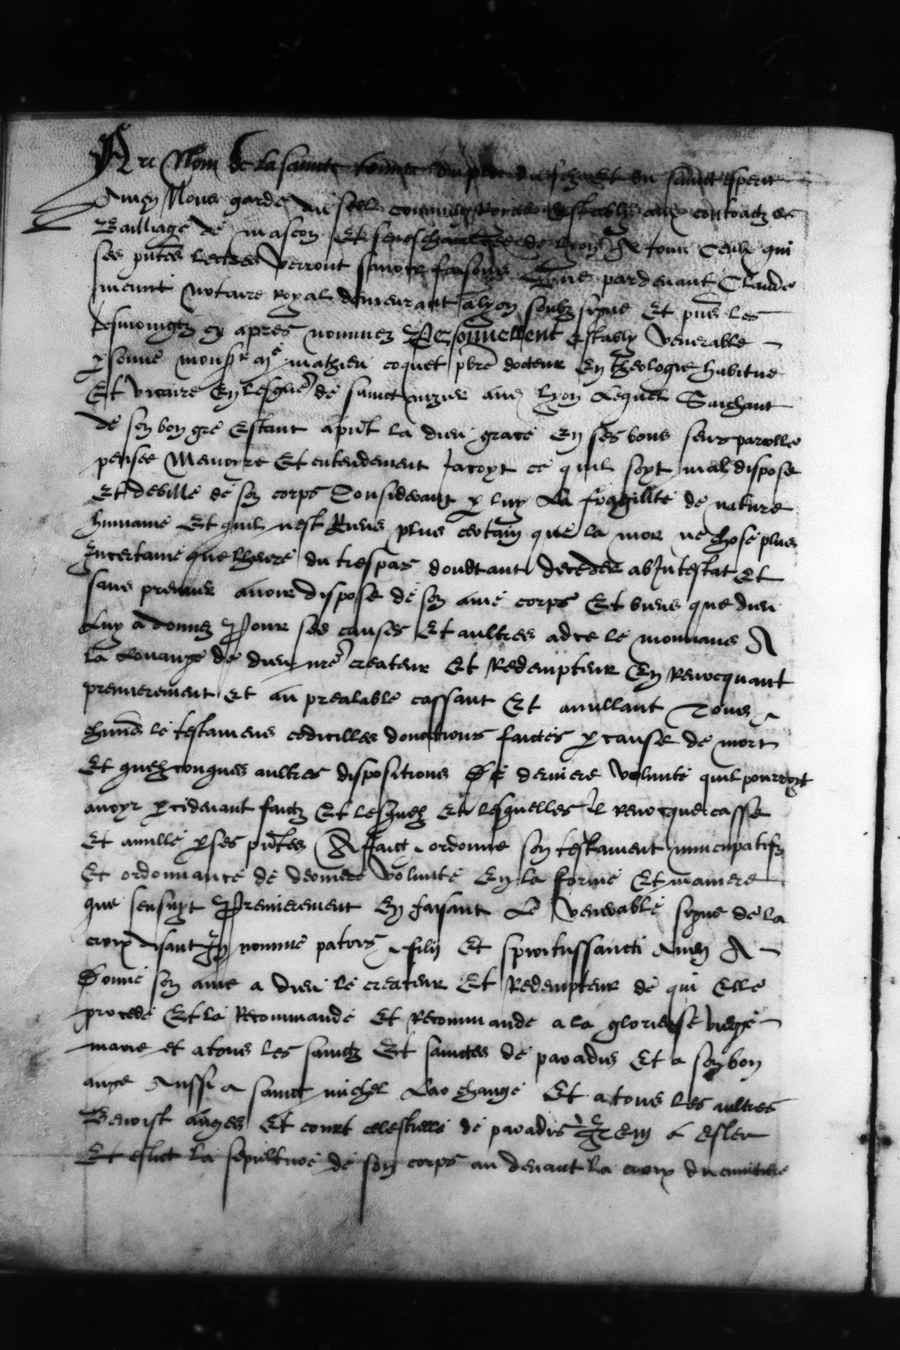 Au Nom de la saincte trinité du pere du filz et du sainct esperit
Amen Nous garde du seel commung Royal estably aux contractz es
Bailliage de mascon Et seneschaulcee de lyon A tous ceulx qui
ses pntes lectres verront scavoir faisons Que pardevant Claude
notaire royal demeurant a lyon soubz signe Et pns les
tesmoingtz cy apres nommez Personnellement estably venerable
psonne monsr me mathieu coquet pbre docteur En theologie habitue
Et vicaire En lesglie de sainct aud lyon Lequel Saichant
de son bon gre Estant apnt la dieu grace En ses bons sens parolle
pensee Memoyre Et entendement Jacoyt ce quil soyt mal dispose
Et debille de son corps Considerant p luy La fragillite de nature
humaine Et quil nest Riens plus certain que la mor ne chose plus
Incertaine que lheure du trespas doubtant deceder abintestat Et
sans premier avoir dispose de son ame corps Et biens que dieu
Luy a donnez Pour ses causes Et aultres adce le mouvans A
la Louange de dieu nre createur Et Redempteur En revocquant
premierement Et au prealable cassant Et anullant Tous
le testamens codicilles donations faictes p cause de mort
Et quelzconques aultres dispositions De derniere volunte quil pourroyt
avoyr p cidevant faictz Et lesquelz Et lesquelles Il revocque casse
Et anulle p ses pntes A faict ordonne son testament nuncupatif
Et ordonnance de derniere volunte En la forme Et maniere
que sensuyt Premierement En faisant Le venerable signe de la
croix disant In nomine patris filij Et spiritussancti Amen A
Donne son ame a dieu le createur Et Redempteur de qui Elle
procede Et la Recommande Et recommande a la glorieuse vierge
marie et a tous les sainctz Et sainctes de paradis Et a son bon
ange Aussi a sainct michel Larchange Et a tous les aultres
Benoist Anges Et court celestielle de paradis Item a Esleu
Et eslict la sepulture de son corps au devant la croix du cimitiere